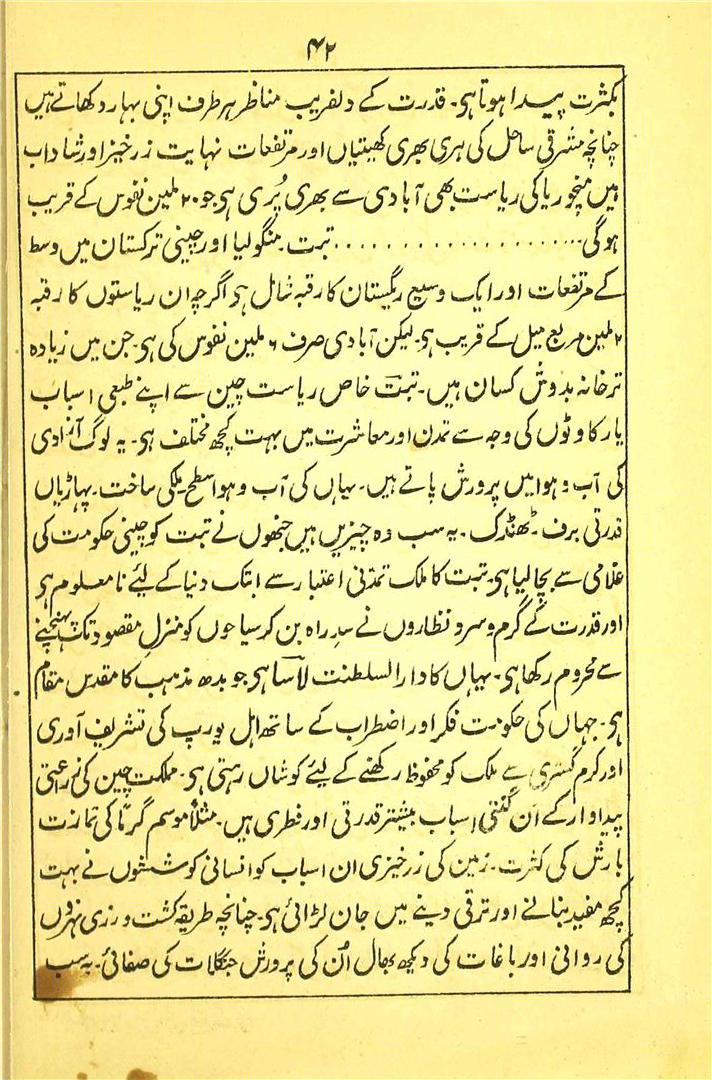 ۴۲
بکثرت پیدا ہوتا ہی۔ قدرت کے دلفریب مناظر ہر طرف اپنی بہار دکھاتے ہیں
چنانچہ مشرقی ساحل کی ہری بھری کھیتیاں اور مرتفعات نہایت زرخیز اور شاداب
ہیں منچوریا کی ریاست بھی آبادی سے بھری پُری ہی جو ۲۰ ملین نفوس کے قریب
ہوگی ................... تبت۔ منگولیا اور چینی ترکستان میں وسط
کے مرتفعات اور ایک وسیع ریگستان کا رقبہ شامل ہی اگرچہ ان ریاستوں کا رقبہ
۲ ملین مربع میل کے قریب ہی۔ لیکن آبادی صرف ۶ ملین نفوس کی ہی۔ جن میں زیادہ
تر خانہ بدوش کسان ہیں۔ تبت خاص ریاست چین سے اپنے طبعی اسباب
یا رکاوٹوں کی وجہ سے تمدن اور معاشرت میں بہت کچھ مختلف ہی۔ یہ لوگ آزادی
کی آب و ہوا میں پرورش پاتے ہیں۔ یہاں کی آب و ہوا سطح ملکی ساخت۔ پہاڑیاں
قدرتی برف۔ ٹھنڈک۔ یہ سب وہ چیزیں ہیں جنھوں نے تبت کو چینی حکومت کی
غلامی سے بچا لیا ہی۔ تبت کا ملک تمدنی اعتبار سے ابتک دنیا کے لئے نا معلوم ہی
اور قدرت کے گرم و سرد نظاروں نے سد راہ بن کر سیاحوں کو منزل مقصود تک پہنچنے
سے محروم رکھا ہی۔ یہاں کا دار السلطنت لاسا ہی جو بدھ مذہب کا مقدس مقام
ہی۔ جہاں کی حکومت فکر اور اضطراب کے ساتھ اہل یورپ کی تشریف آوری
اور کرم گستری سے ملک کو محفوظ رکھنے کے لیئے کوشاں رہتی ہی۔ مملکت چین کی زراعتی
پیداوار کے ان گنتی اسباب بیشتر قدرتی اور فطری ہیں۔ مثلاً موسم گرما کی تمازت
بارش کی کثرت۔ زمین کی زرخیزی ان اسباب کو انسانی کوششوں نے بہت
کچھ مفید بنانے اور ترقی دینے میں جان لڑائی ہی۔ چنانچہ طریقہ کشت و رزی نہروں
کی روانی اور باغات کی دیکھ بھال اُن کی پرورش جنگلات کی صفائی۔ یہ سب